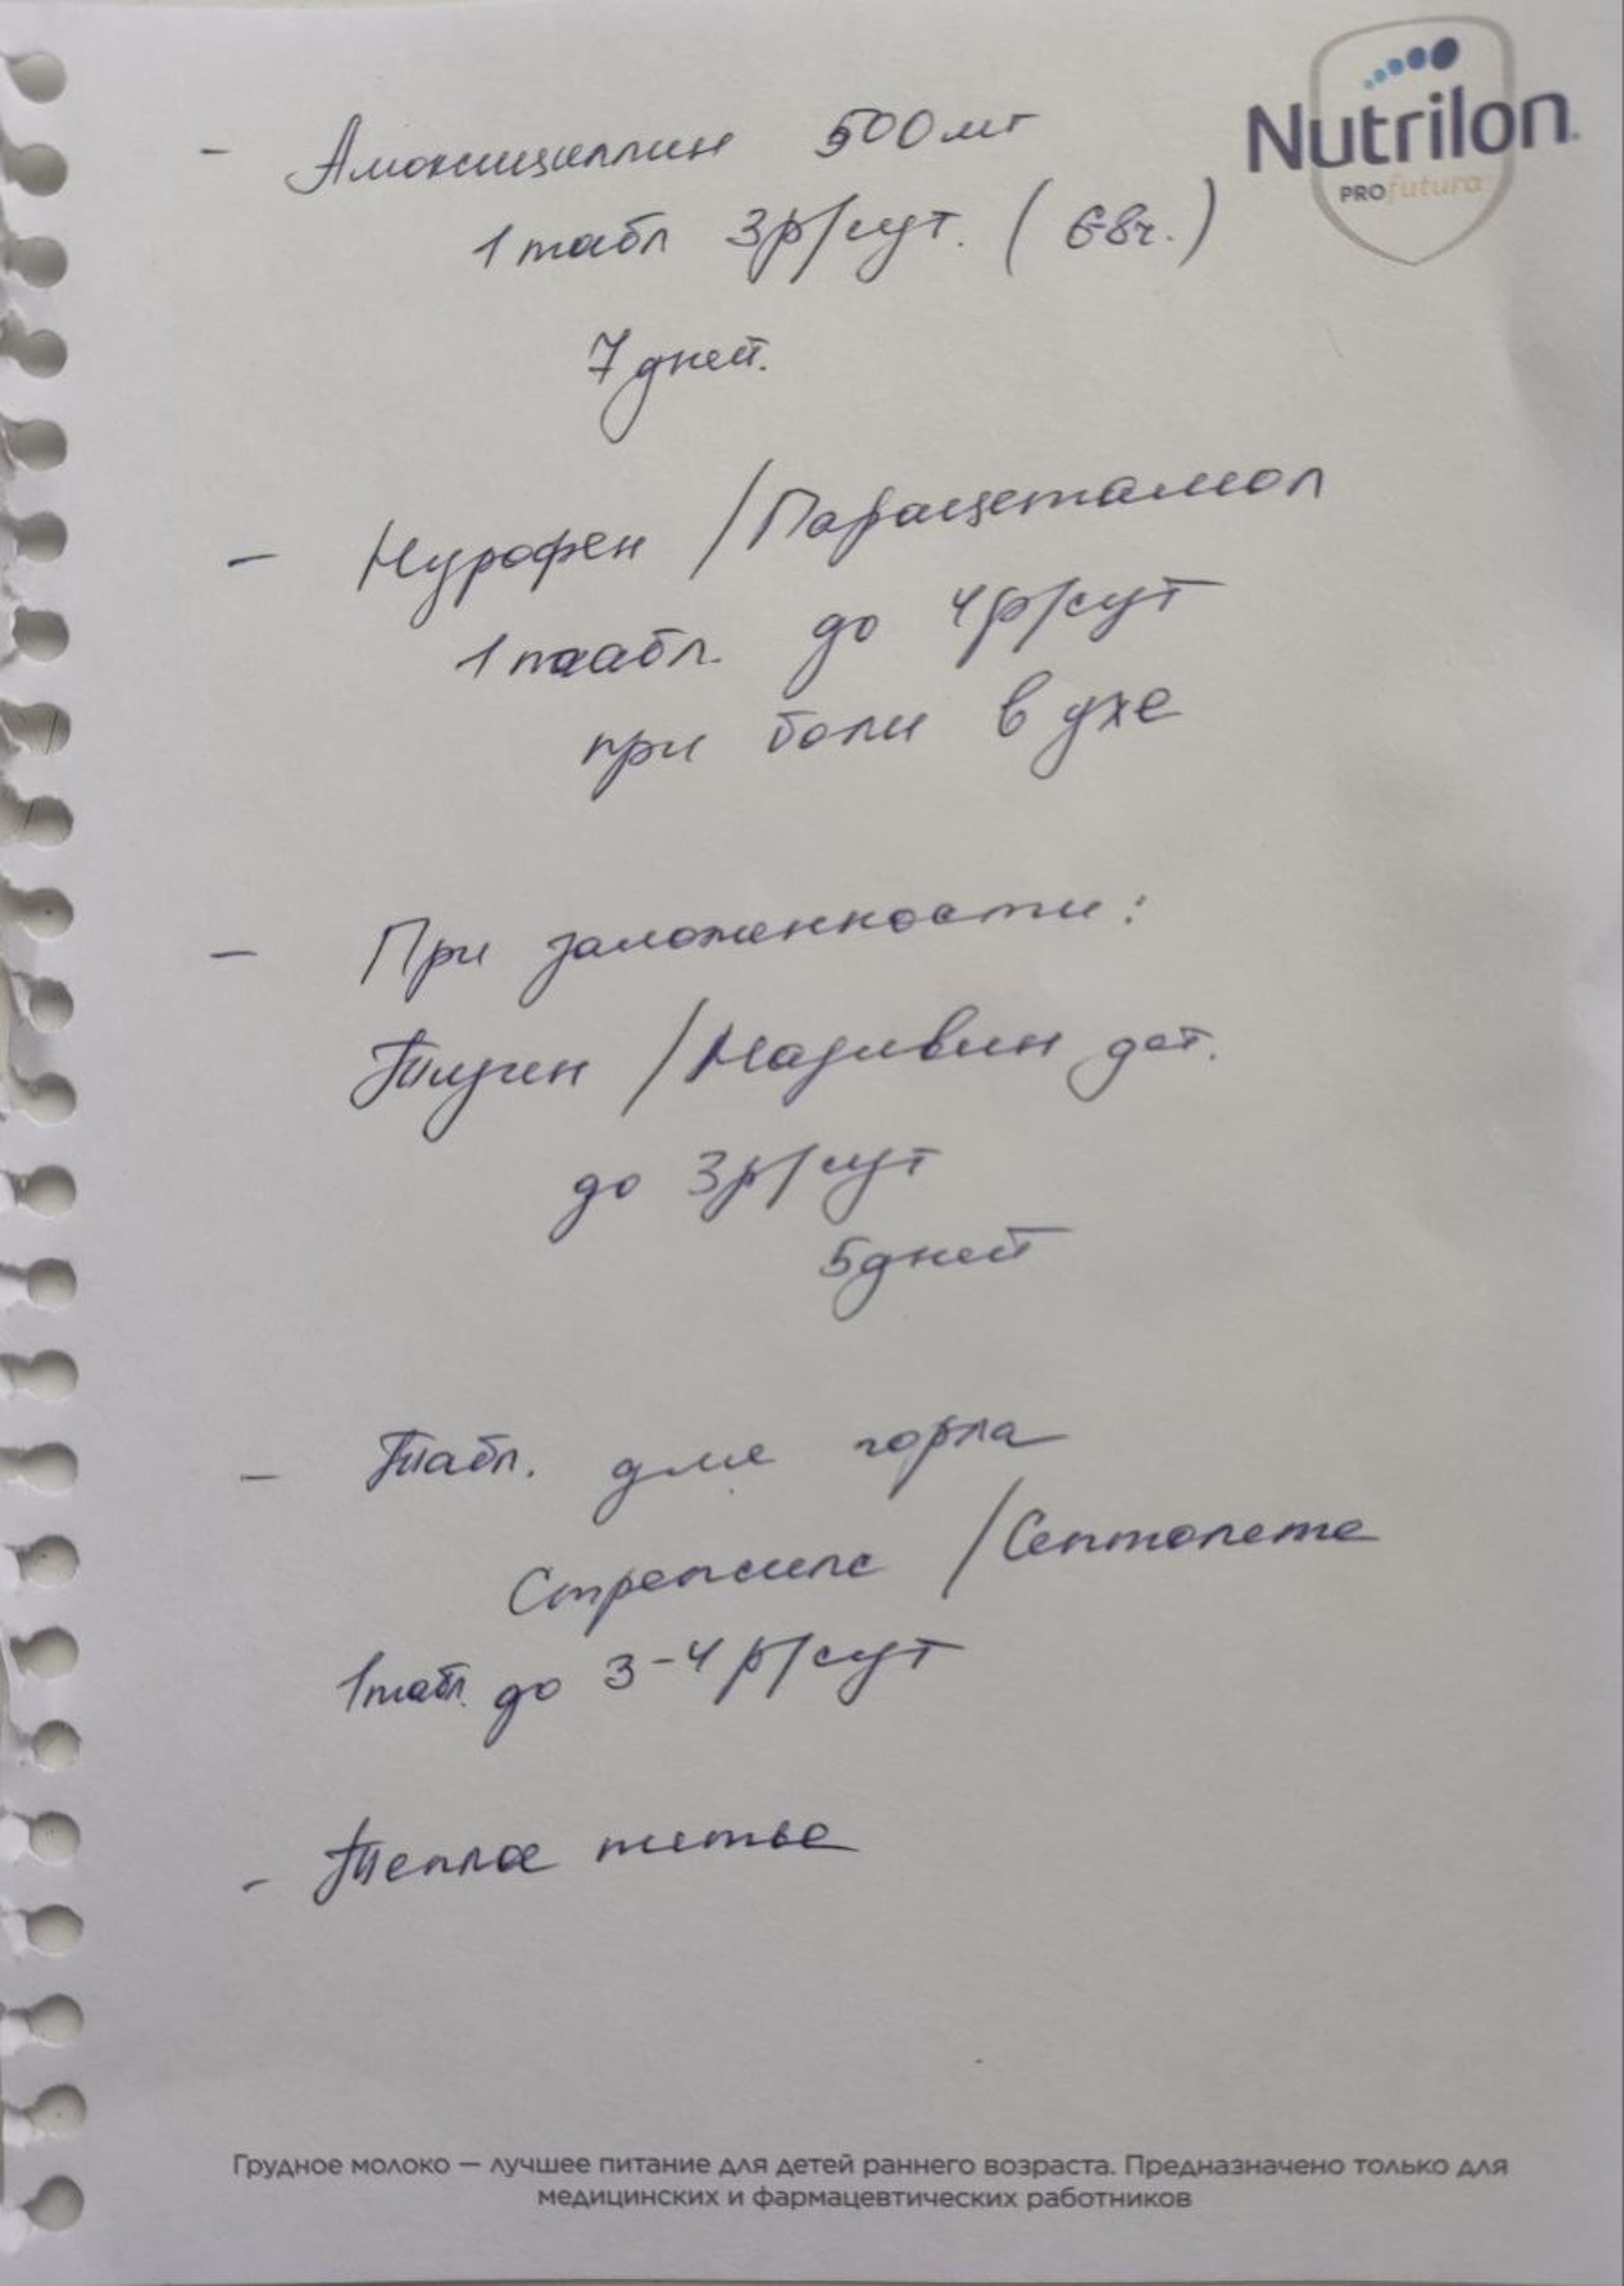 Nutrilon
PROfutura
- Амоксициллин 500мг
1 табл 3р/сут. (6-8ч.)
7 дней.
- Нурофен / Парацетамол
1 таабл. до 4р/сут
при боли в ухе
- При заложенности:
Тизин / Називин дет.
до 3р/сут
5 дней
- Табл. для горла
Стрепсилс / Септолете
1 табл. до 3-4 р/сут
- Теплое питье
Грудное молоко — лучшее питание для детей раннего возраста. Предназначено только для
медицинских и фармацевтических работников